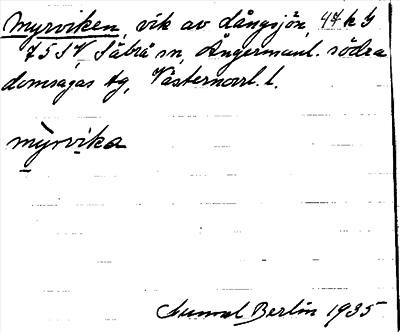 Myrviken, vik av Långsjön, 47 kb
75 SV, Säbrå sn, Ångermanl. södra
domsagas tg, Västernorrl. l.
mỳrvika
Gunvel Berlin 1935